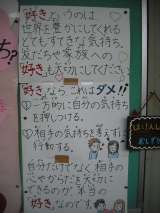 「好き」というのは
世界を豊かにしてくれる
とてもすてきな気持ち。
友だちや家族への
「好き」も大切にしてください。
「好き」なら これはダメ!!
一方的に自分の気持ち
を押しつける。
相手の気持ちを考えずに
行動する。
自分だけでなく相手の
できるのが本当の
「好き」なのです。